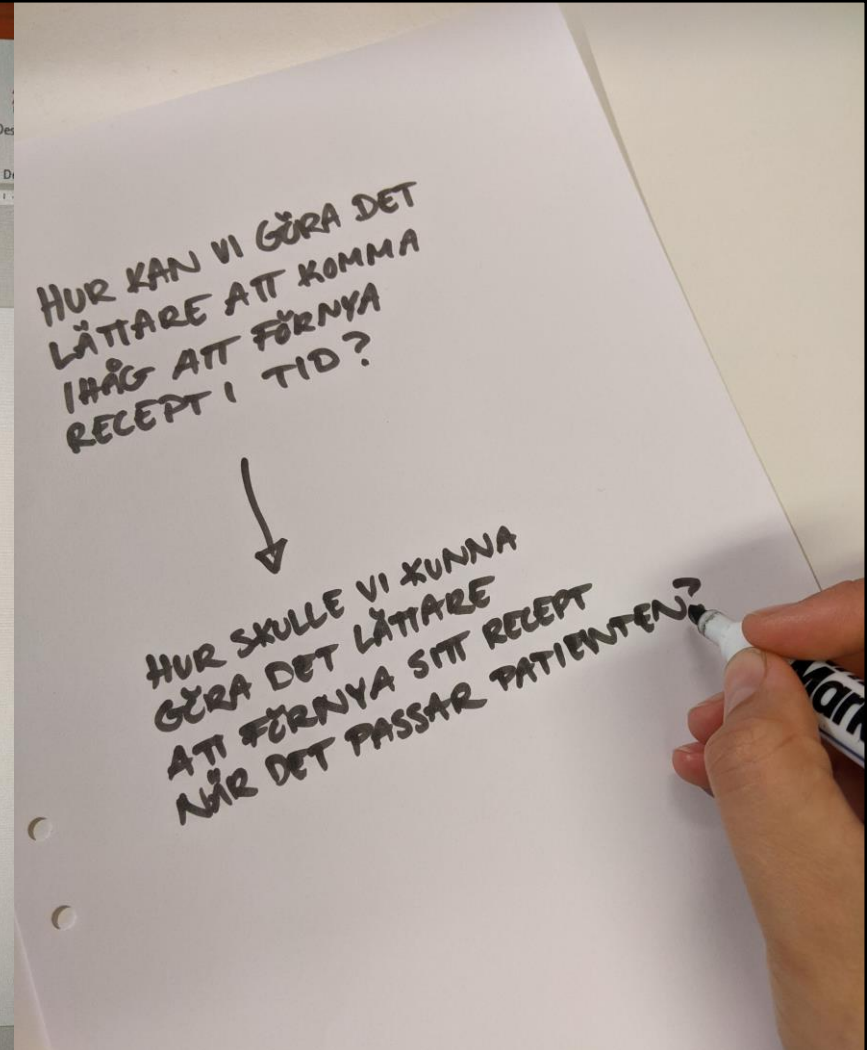 HUR KAN VI GÖRA DET
LÄTTARE ATT KOMMA
IHÅG ATT FÖRNYA
RECEPT I TID?
HUR SKULLE VI KUNNA
GÖRA DET LÄTTARE
ATT FÖRNYA SITT RECEPT
NÄR DET PASSAR PATIENTEN?